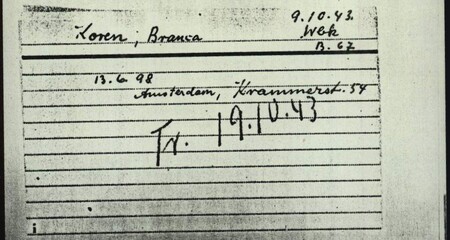 9.10.43.
Koren, Branca Wbk
B. 67
13.6 98
Amsterdam, Krammerst. 54
Tr. 19.10.43
i